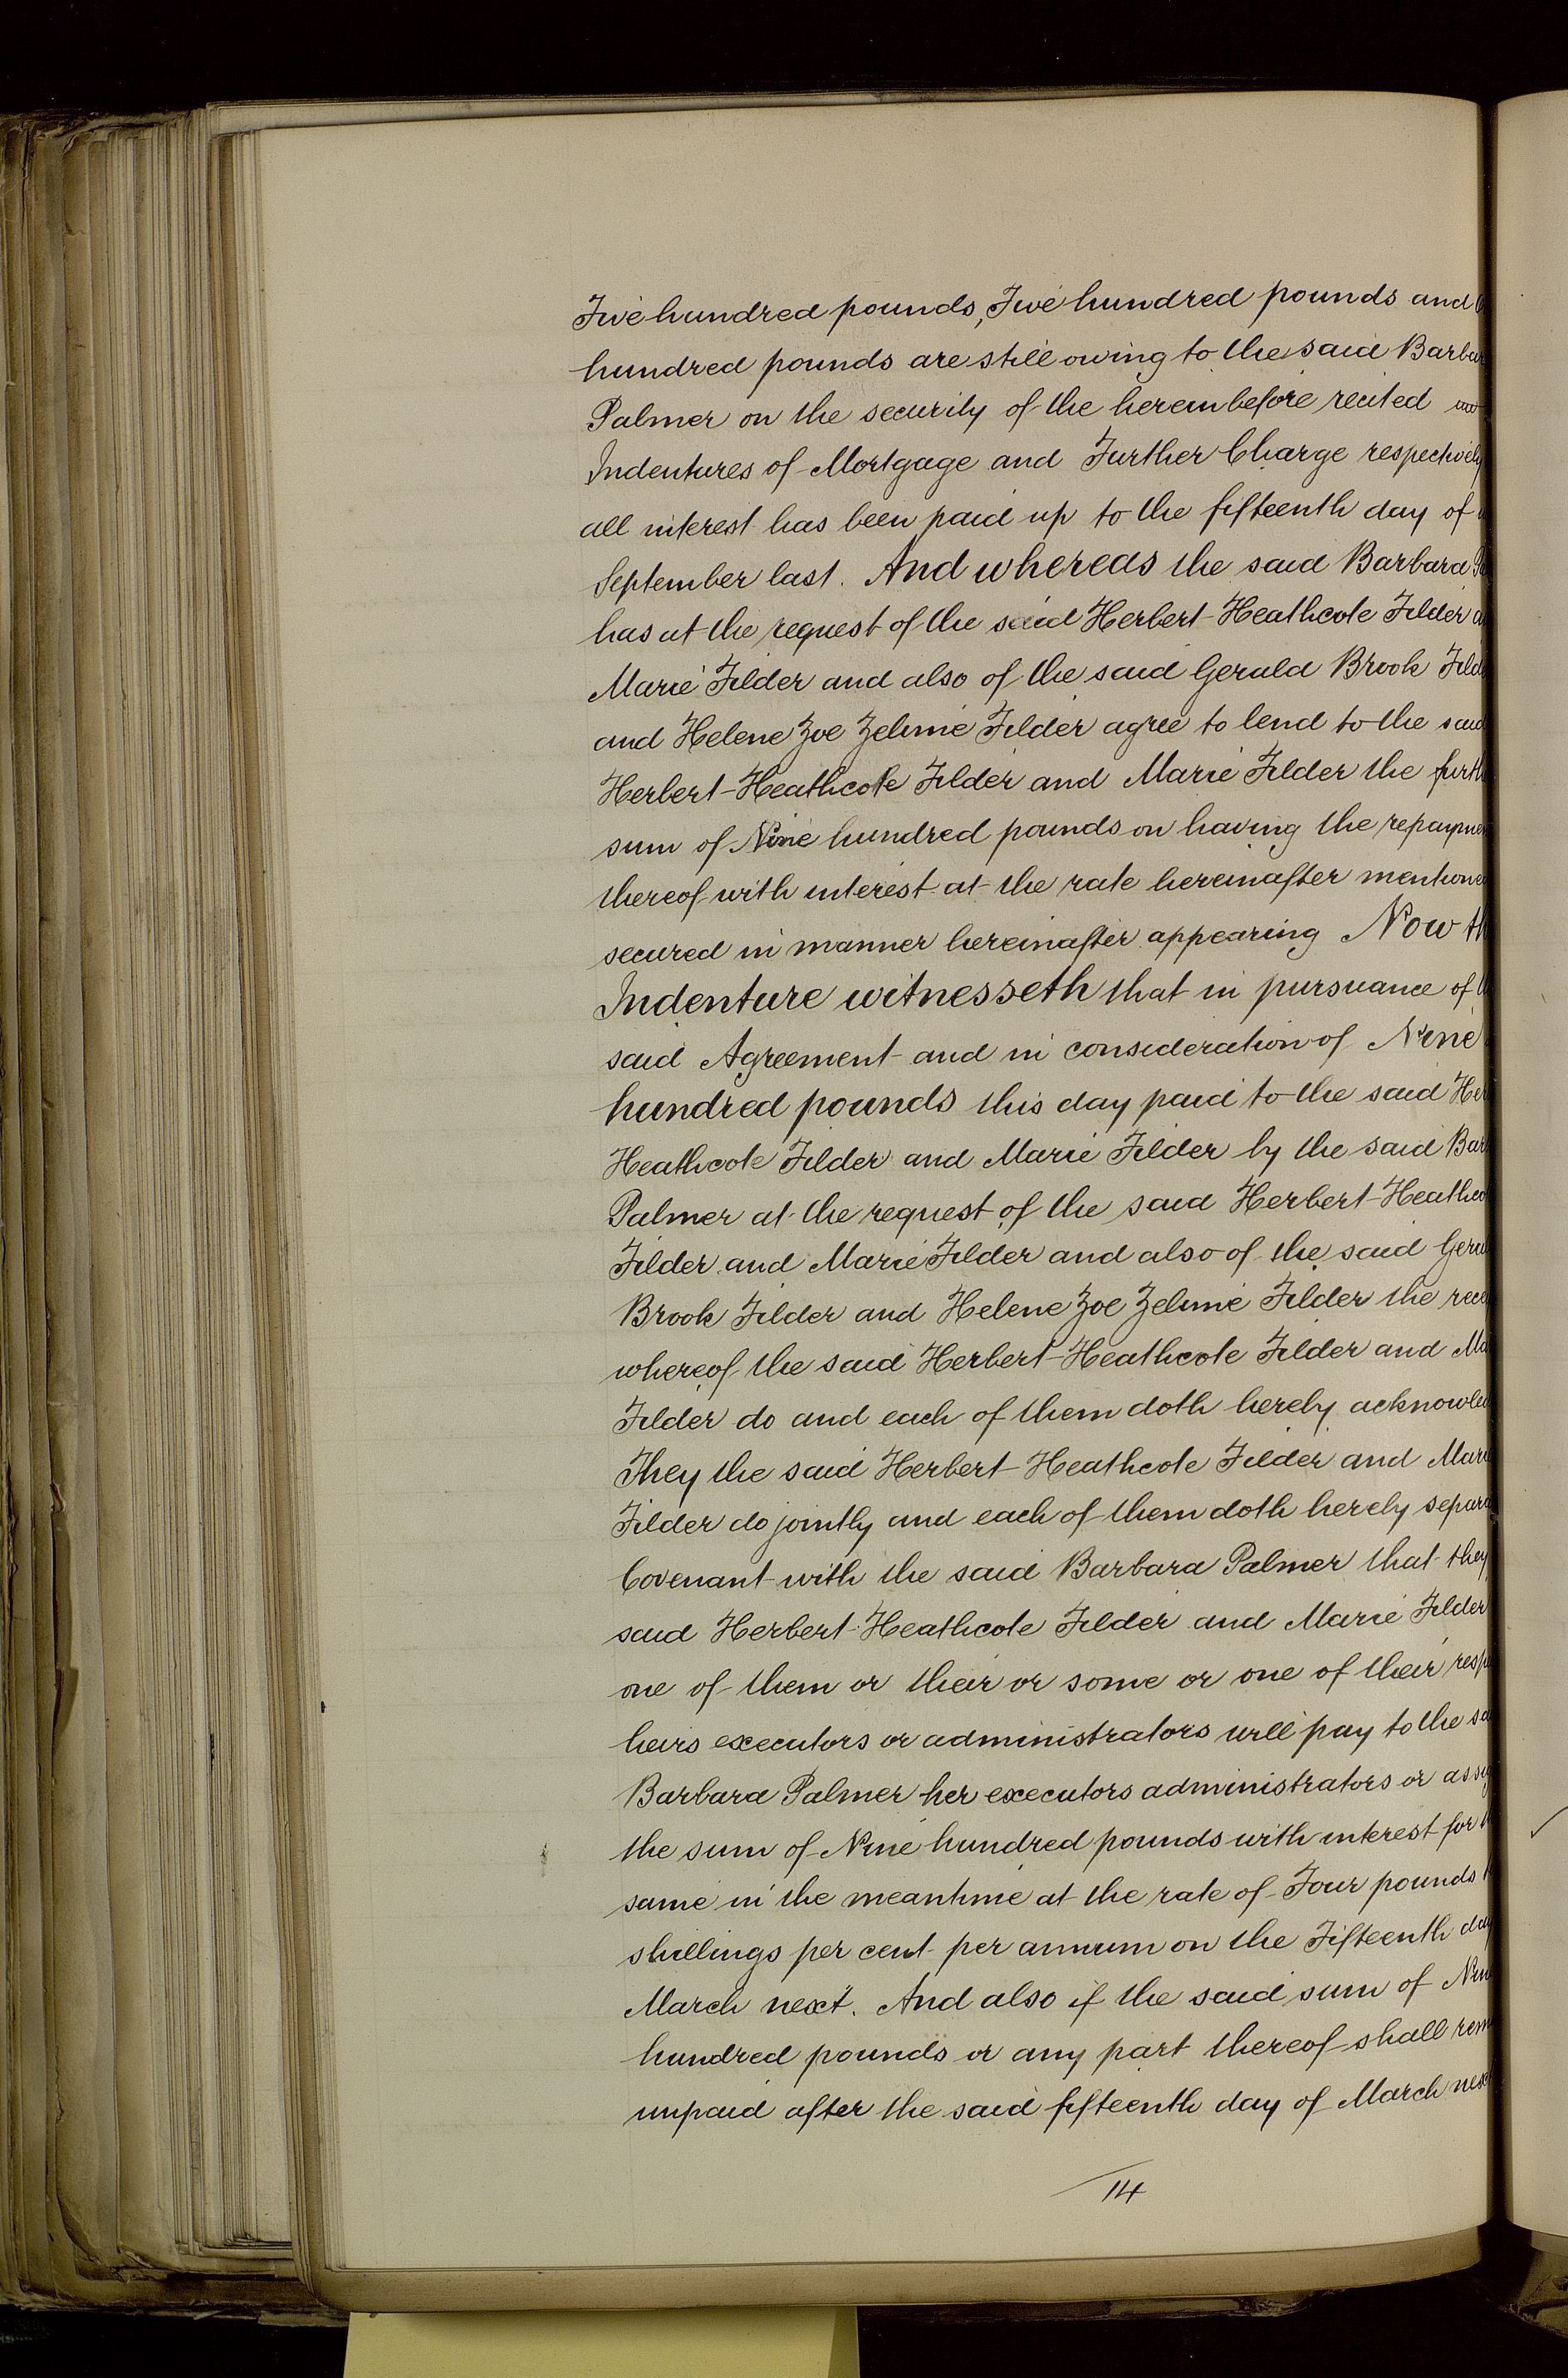 Five hundred pounds, Five hundred pounds and
hundred pounds are still owing to the said Barbar
Palmer on the security of the hereinbefore recited
Indentures of Mortgage and Further Charge respectively
all interest has been paid up to the fifteenth day of
September last. And whereas the said Barbara
has at the request of the said Herbert Heathcote Filder
Marie Filder and also of the said Gerald Brook Filde
and Helene Zoe Zelimie Filder agree to lend to the said
Herbert Heathcote Filder and Marie Filder the furth
sum of Nine hundred pounds on having the repaymen
thereof with interest at the rate hereinafter mentioned
secured in manner hereinafter appearing Now th
Indenture witnesseth that in pursuance of
said Agreement and in consideration of Nine
hundred pounds this day paid to the said Her
Heathcote Filder and Marie Filder by the said Bar
Palmer at the request of the said Herbert Heathco
Filder and Marie Filder and also of the said Gera
Brook Filder and Helene Zoe Zelimie Filder the rece
whereof the said Herbert Heathcote Filder and Ma
Filder do and each of them doth hereby acknowled
They the said Herbert Heathcote Filder and Marie
Filder do jointly and each of them doth hereby separa
Covenant with the said Barbara Palmer that they
said Herbert Heathcote Filder and Marie Filder
one of them or their or some or one of their resp
heirs executors or administrators will pay to the sa
Barbara Palmer her executors administrators or assig
the sum of Nine hundred pounds with interest for
same in the meantime at the rate of Four pounds
shillings per cent per annum on the Fifteenth day
March next. And also if the said sum of Nine
hundred pounds or any part thereof shall rem
unpaid after the said fifteenth day of March next
14